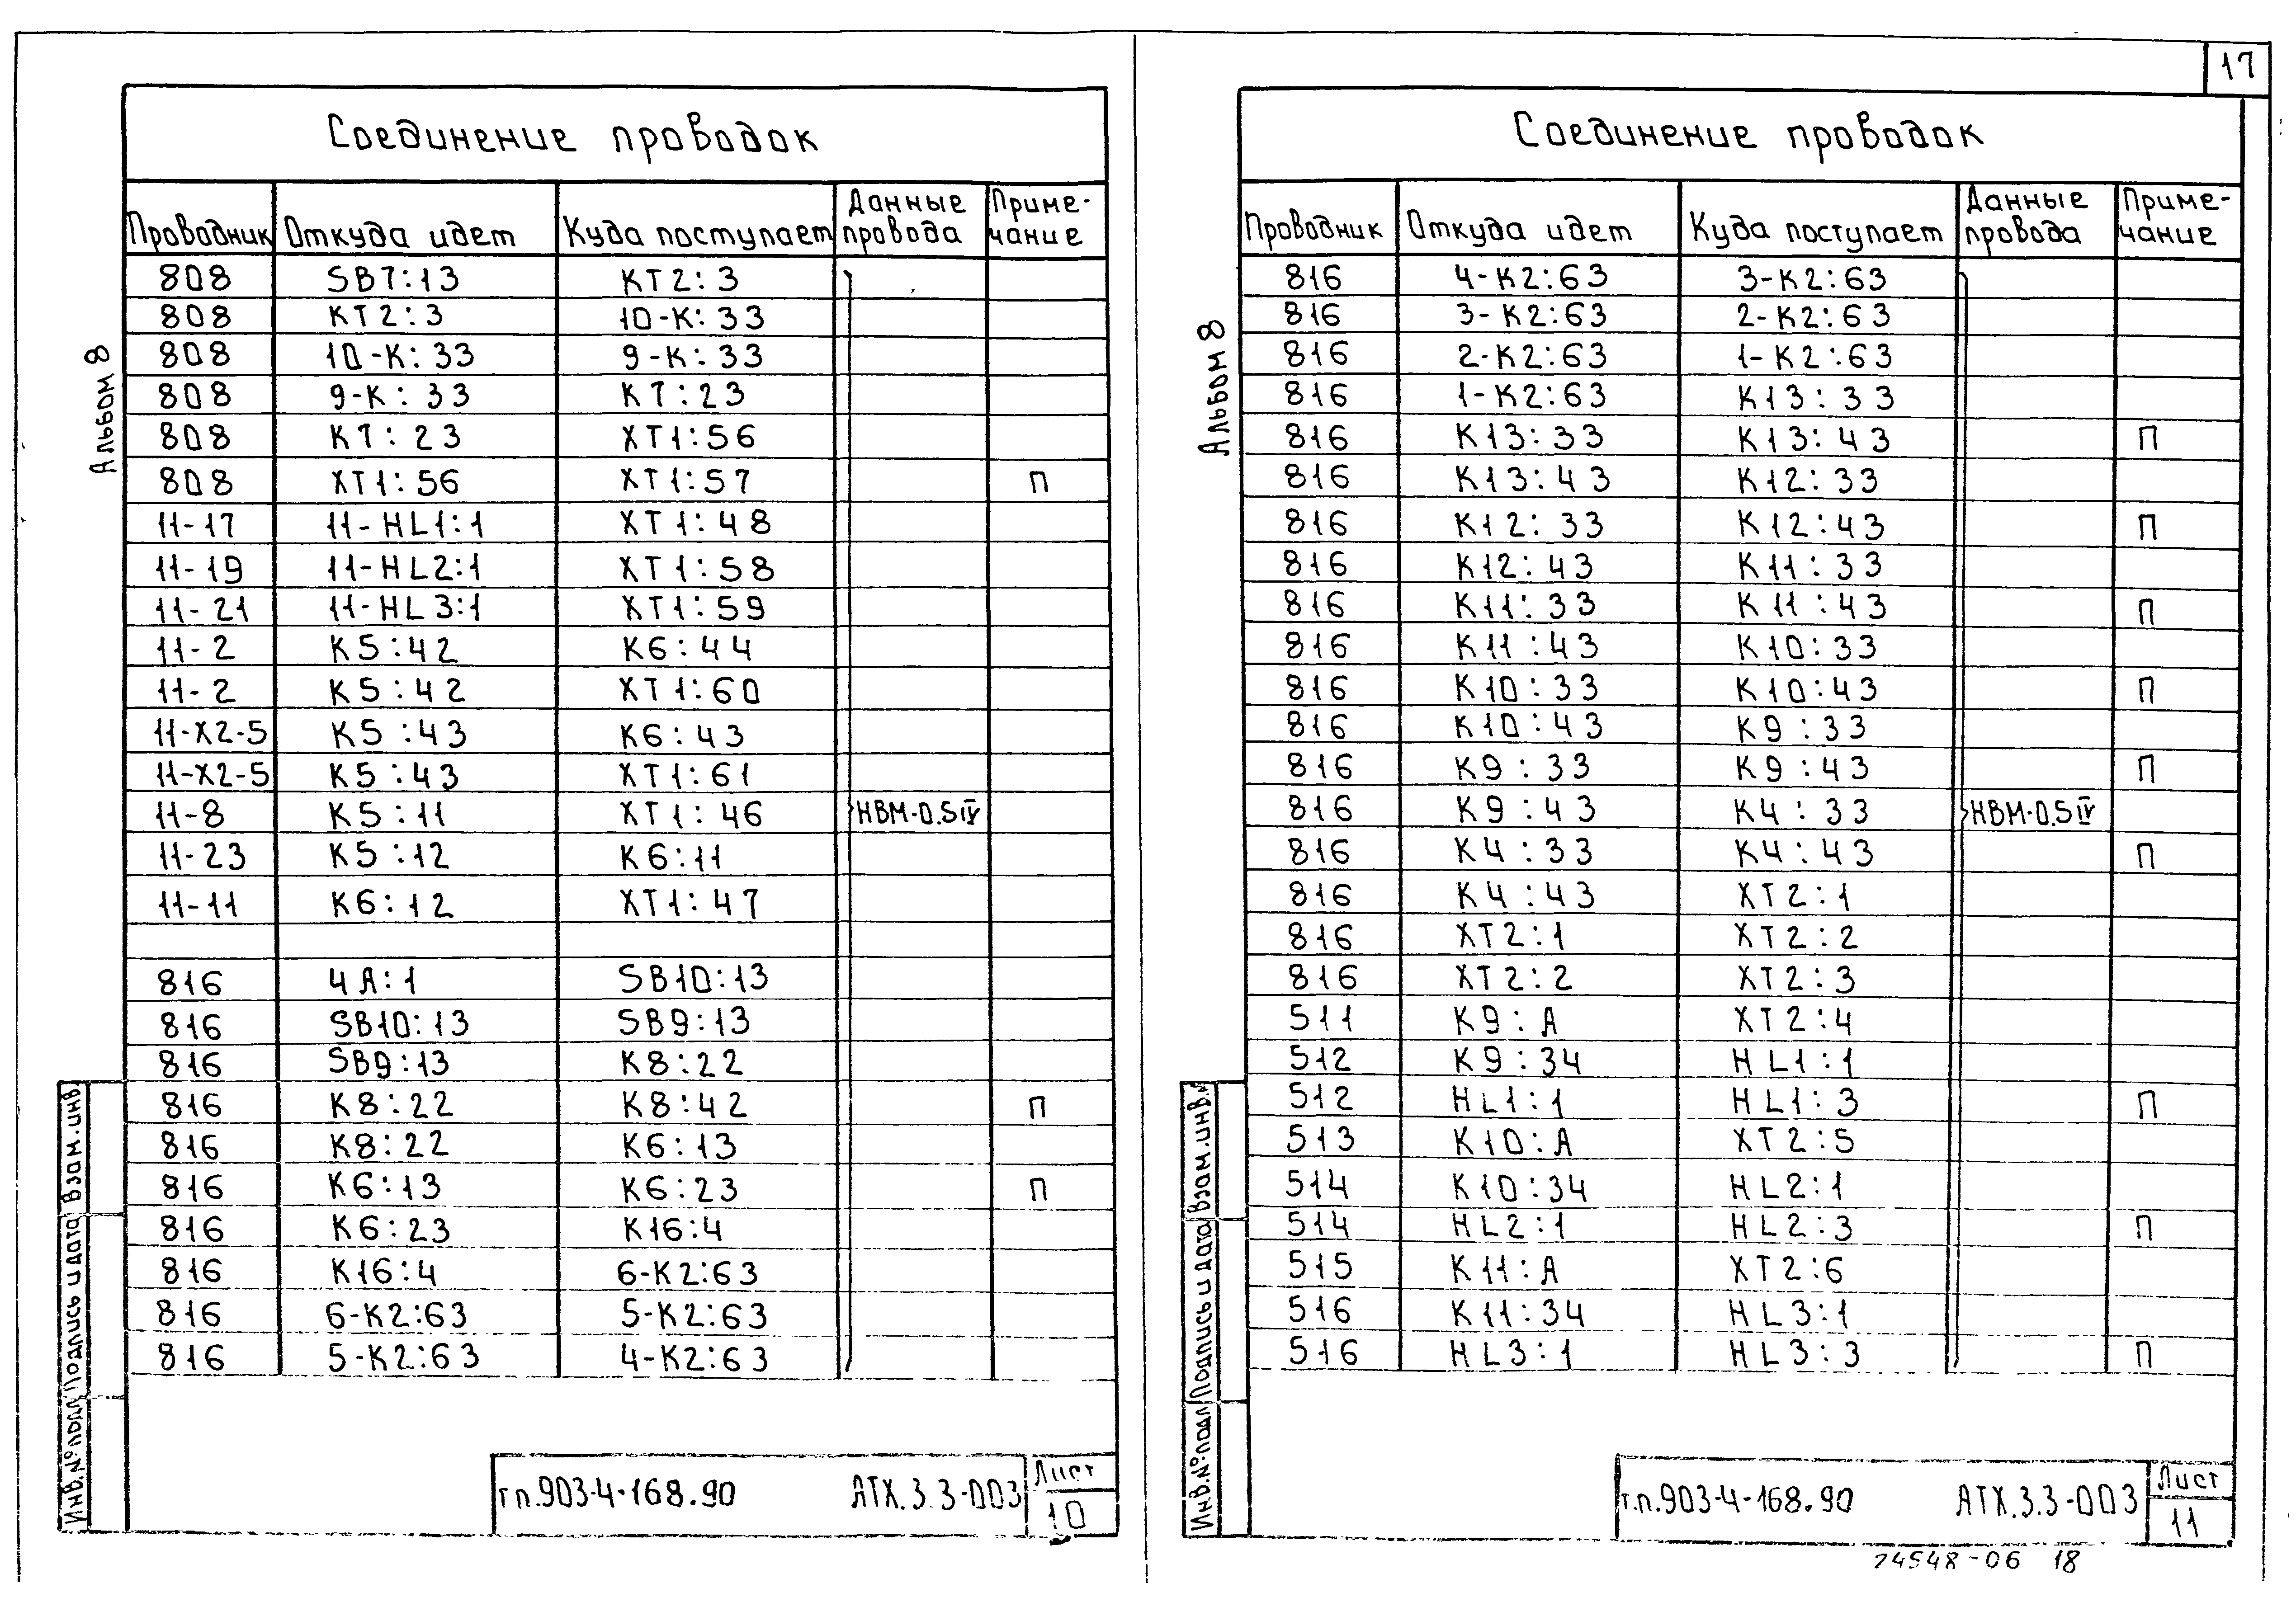 17
Альбом 8
Соединение проводок
Проводник Откуда идет Куда поступает Данные провода Приме-чание
808 SB7:13 КТ2:3
808 КТ2:3 10-К:33
808 10-К:33 9-К:33
808 9-К:33 К7:23
808 К7:23 ХТ1:56
808 ХТ1:56 ХТ1:57 П
11-17 11-HL1:1 ХТ1:48
11-19 11-HL2:1 ХТ1:58
11-21 11-HL3:1 ХТ1:59
11-2 К5:42 К6:44
11-2 К5:42 ХТ1:60
11-Х2-5 К5:43 К6:43
11-Х2-5 К5:43 ХТ1:61
11-8 К5:11 ХТ1:46 НВМ-0.5 IV
11-23 К5:12 К6:11
11-11 К6:12 ХТ1:47
816 4А:1 SB10:13
816 SB10:13 SB9:13
816 SB9:13 К8:22
816 К8:22 К8:42 П
816 К8:22 К6:13
816 К6:13 К6:23 П
816 К6:23 К16:4
816 К16:4 6-К2:63
816 6-К2:63 5-К2:63
816 5-К2:63 4-К2:63
Взам.инв
Подпись и дата
Инв.№подл
т.п.903-4-168.90 АТХ.3.3-003 Лист
10
Альбом 8
Соединение проводок
Проводник Откуда идет Куда поступает Данные провода Приме-чание
816 4-К2:63 3-К2:63
816 3-К2:63 2-К2:63
816 2-К2:63 1-К2:63
816 1-К2:63 К13:33
816 К13:33 К13:43 П
816 К13:43 К12:33
816 К12:33 К12:43 П
816 К12:43 К11:33
816 К11:33 К11:43 П
816 К11:43 К10:33
816 К10:33 К10:43 П
816 К10:43 К9:33
816 К9:33 К9:43 П
816 К9:43 К4:33 НВМ-0.5 IV
816 К4:33 К4:43 П
816 К4:43 ХТ2:1
816 ХТ2:1 ХТ2:2
816 ХТ2:2 ХТ2:3
511 К9:А ХТ2:4
512 К9:34 HL1:1
512 HL1:1 HL1:3 П
513 К10:А ХТ2:5
514 К10:34 HL2:1
514 HL2:1 HL2:3 П
515 К11:А ХТ2:6
516 К11:34 HL3:1
516 HL3:1 HL3:3 П
Взам.инв.№
Подпись и дата
Инв.№подл
т.п.903-4-168.90 АТХ.3.3-003 Лист
11
24548-06 18